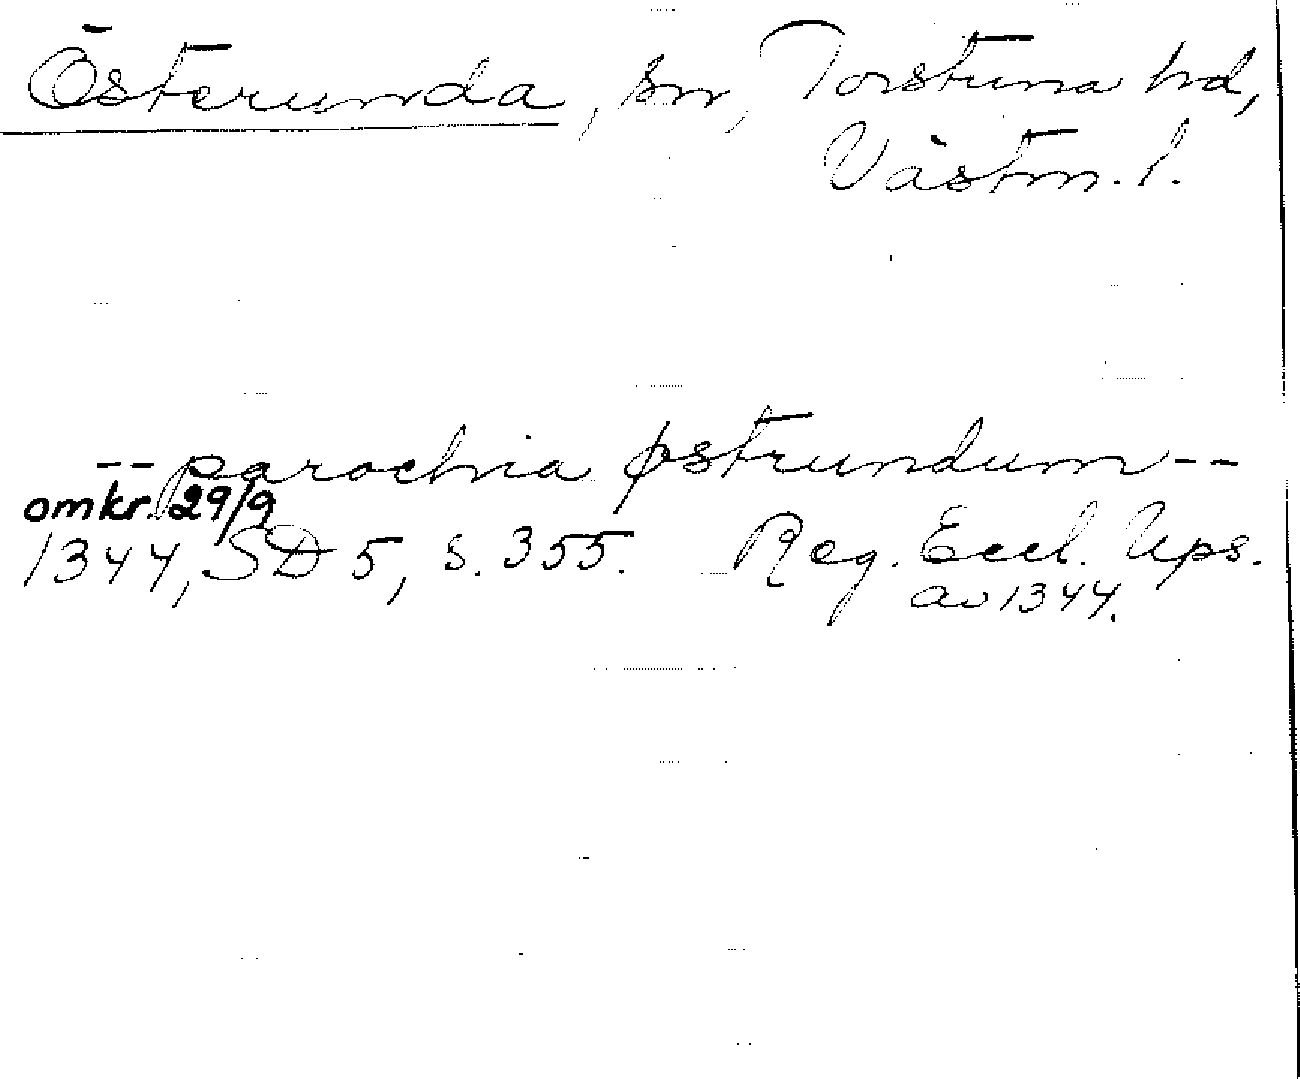 Österunda, sn, Torstuna hd,
Västm. l.
-- parochia østrundum --
omkr. 29/9
1344, SD 5, s. 355. Reg. Eccl. Ups.
av 1344.